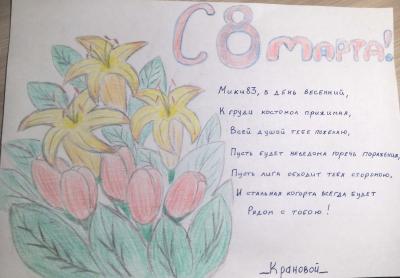 С 8 МАРТА!
Мики83, в день весенний,
К груди костомол прижимая,
Всей душой тебе пожелаю,
Пусть будет неведома горечь поражения,
Пусть лига обходит тебя стороною,
И стальная когорта всегда будет
Рядом с тобою!
_Крановой_